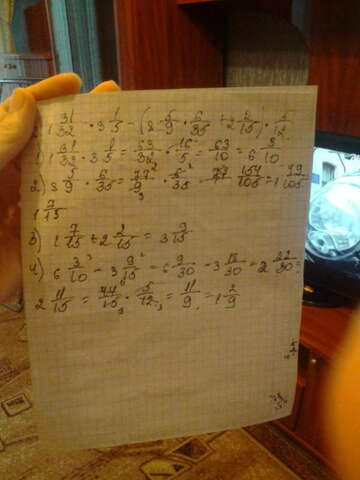 1 31/32 · 3 1/5 - (8 5/9 · 6/35 + 2 2/15) · 5/12
1) 1 31/32 · 3 1/5 = 63/32 · 16/5 = 63/10 = 6 3/10
2) 8 5/9 · 6/35 = 77/9 · 6/35 = 154/105 = 1 49/105
1 7/15
3) 1 7/15 + 2 2/15 = 3 9/15
4) 6 3/10 - 3 9/15 = 6 9/30 - 3 18/30 = 2 22/30 =
2 11/15 = 44/15 · 5/12 = 11/9 = 1 2/9